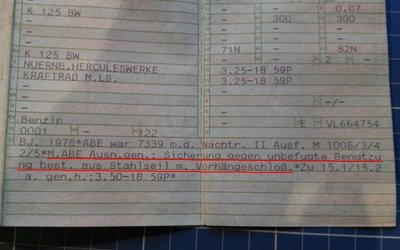 0,07
K 125 BW 300 300
K 125 BW 71N 82N
NUERNB.HERCULESWERKE - 2 -
KRAFTRAD M.LB. 3.25-18 59P
- 3.25-18 59P
-
-
- -/-
-
Benzin E VL664754
0001 - 122
BJ. 1978*ABE war 7339 m.d. Nachtr. II Ausf. M 1006/3/4
2/5*M.ABE Ausn.gen.: Sicherung gegen unbefugte Benutzu
ng best. aus Stahlseil m. Vorhängeschloß.*Zu 15.1/15.2
a. gen.h.:3.50-18 59P*